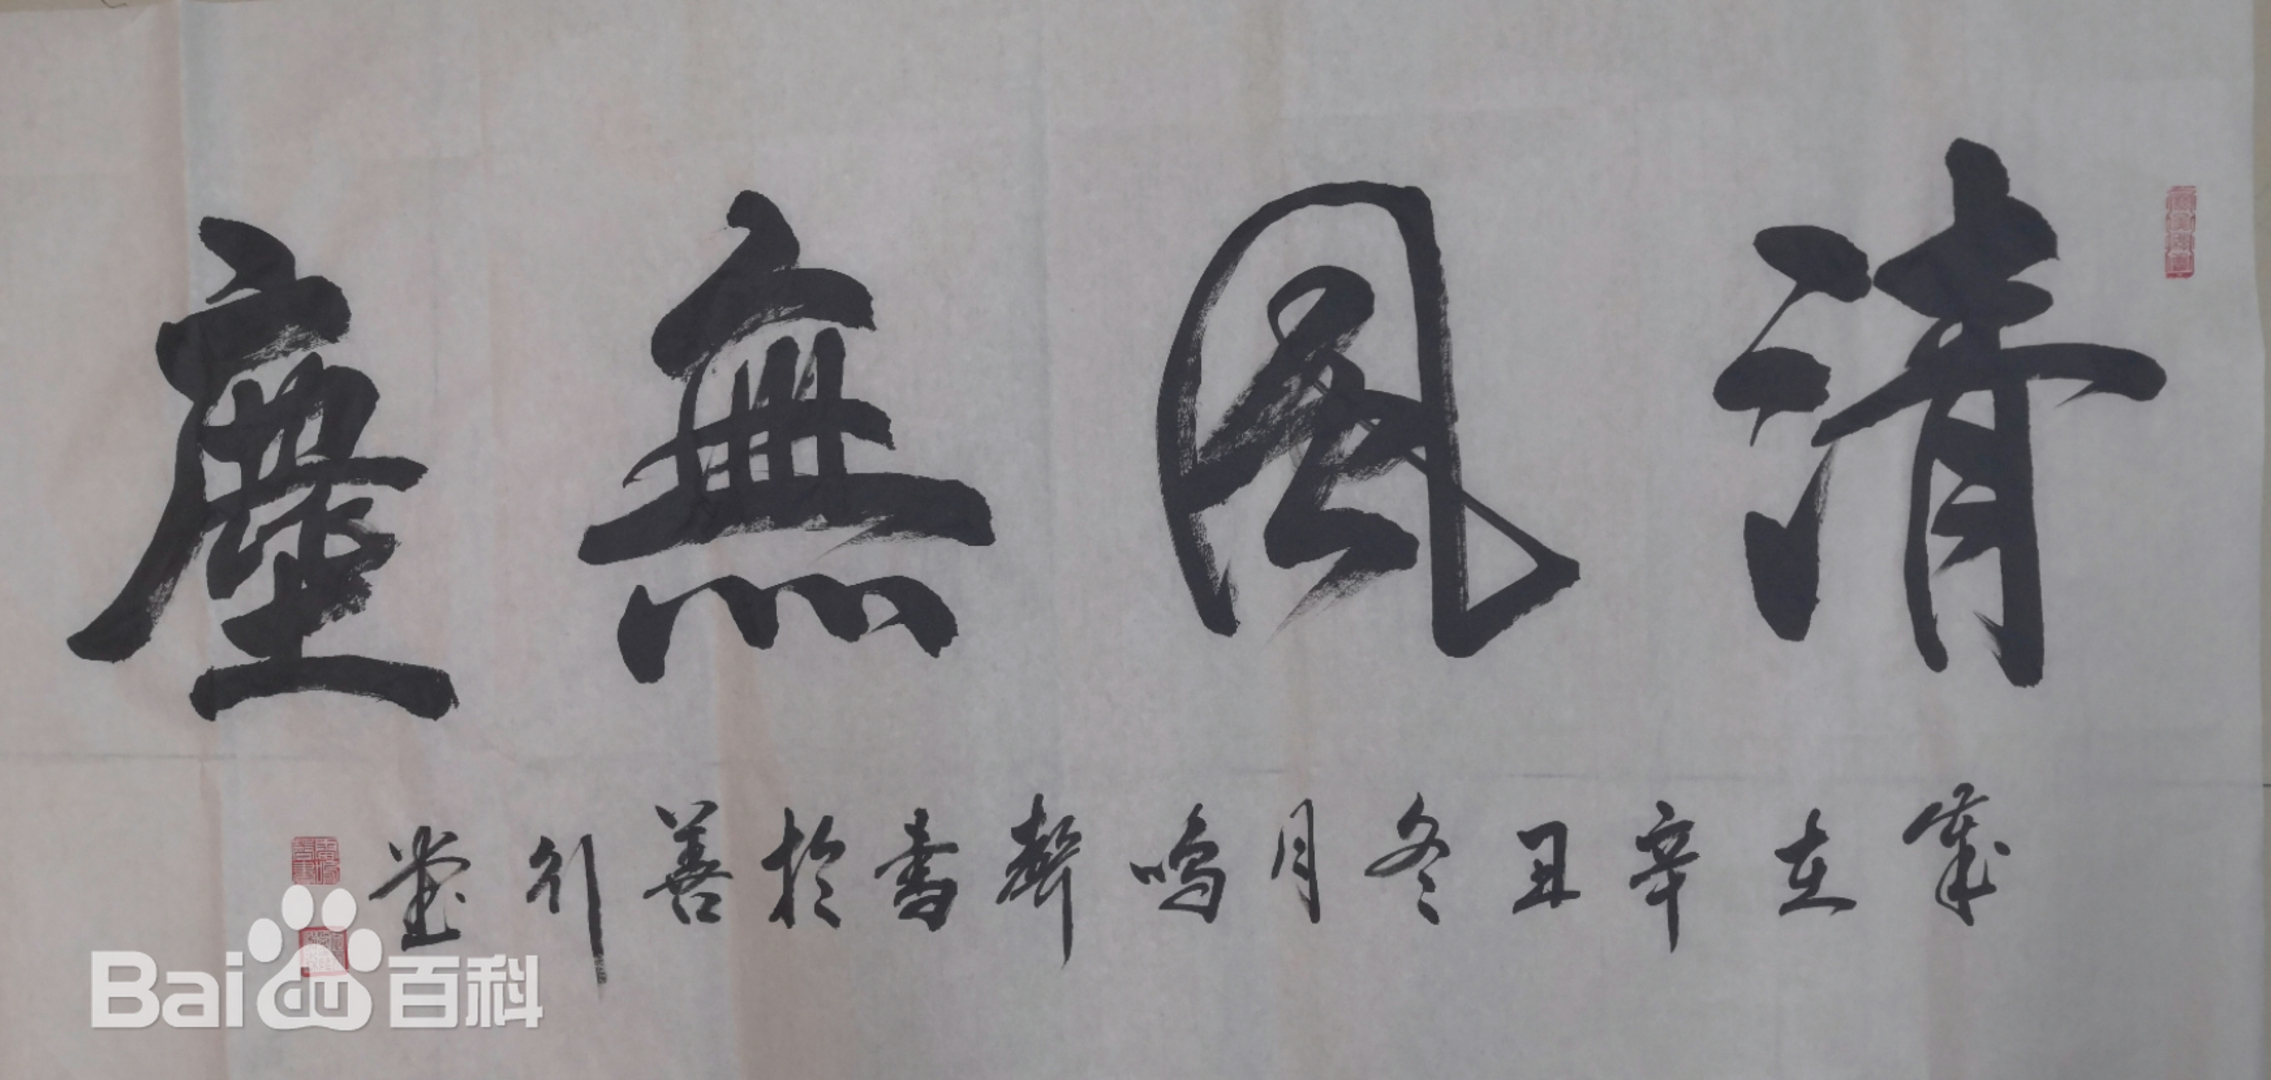 清風無塵
歲在辛丑冬月鳴聲書於善行堂
Bai 百科